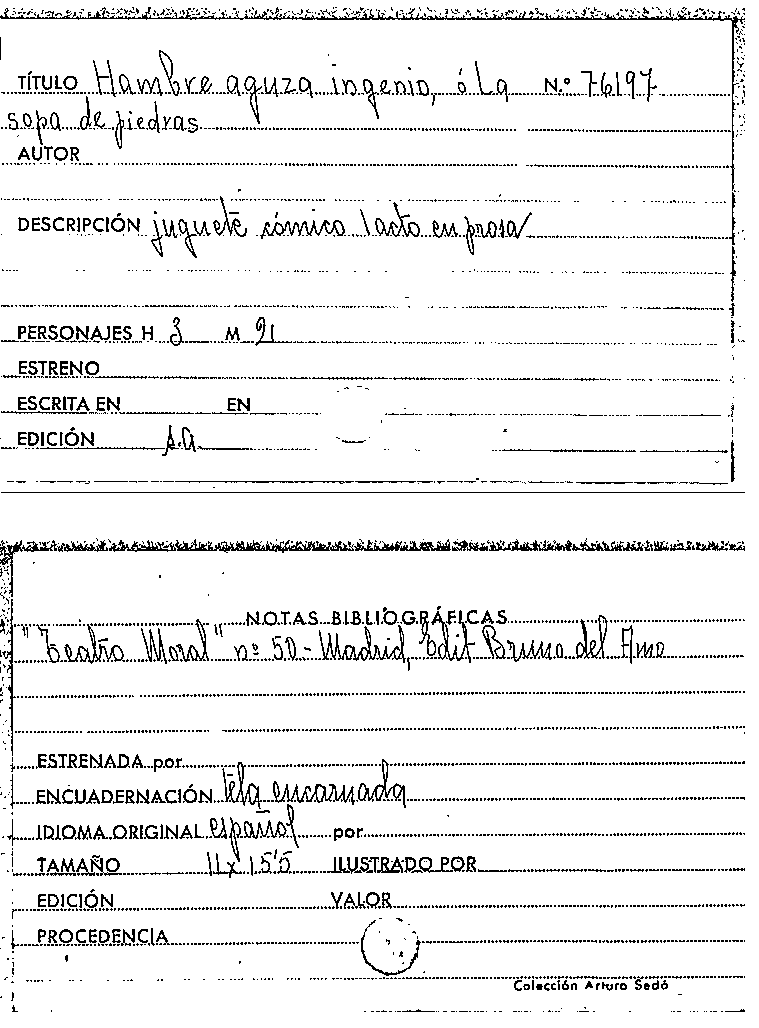 TÍTULO Hambre aguza ingenio, ó La N.º 76197
sopa de piedras
AUTOR
DESCRIPCIÓN juguete cómico 1 acto en prosa
PERSONAJES H 3 M
ESTRENO
ESCRITA EN EN
EDICIÓN s.a.
NOTAS BIBLIOGRÁFICAS
"Teatro Moral" nº 50 - Madrid, Edit Bruno del Amo
ESTRENADA por
ENCUADERNACIÓN tela encarnada
IDIOMA ORIGINAL español por
TAMAÑO 11 x 15'5 ILUSTRADO POR
EDICIÓN VALOR
PROCEDENCIA
Colección Arturo Sedó